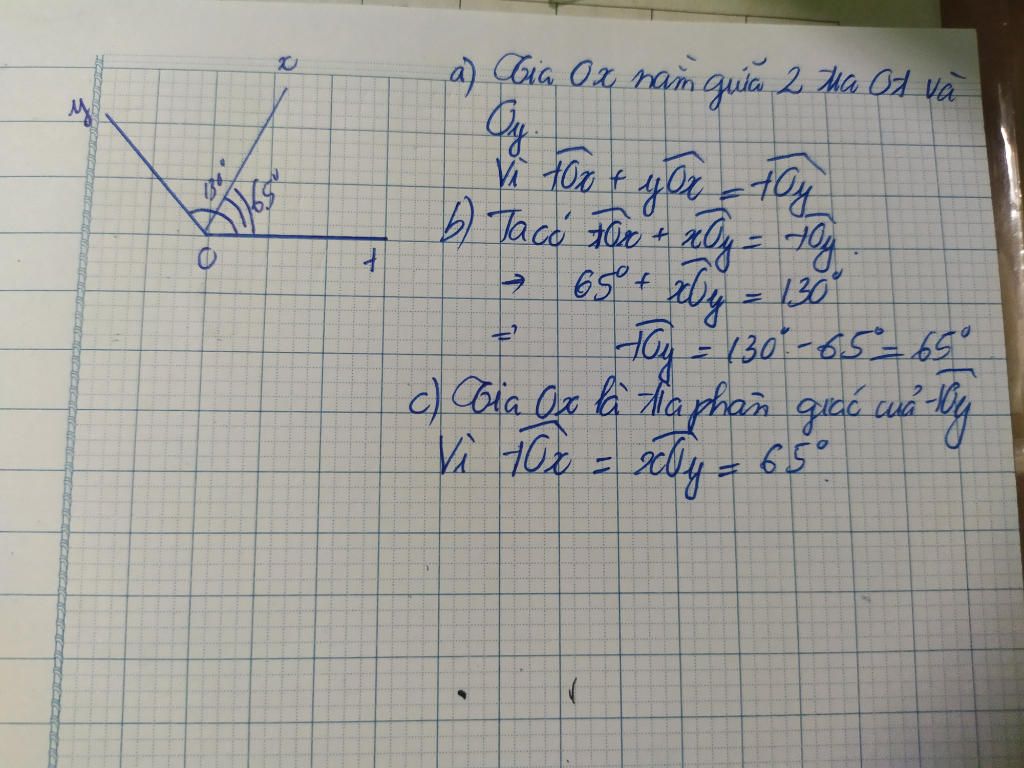 x
y
130°
65°
O
t
a) Tia Ox nằm giữa 2 tia Ot và
Oy.
Vì tOx + yOx = tOy
b) Ta có tOx + xOy = tOy.
→ 65° + xOy = 130°
=> tOy = 130° - 65° = 65°
c) Tia Ox là tia phân giác của tOy
Vì tOx = xOy = 65°